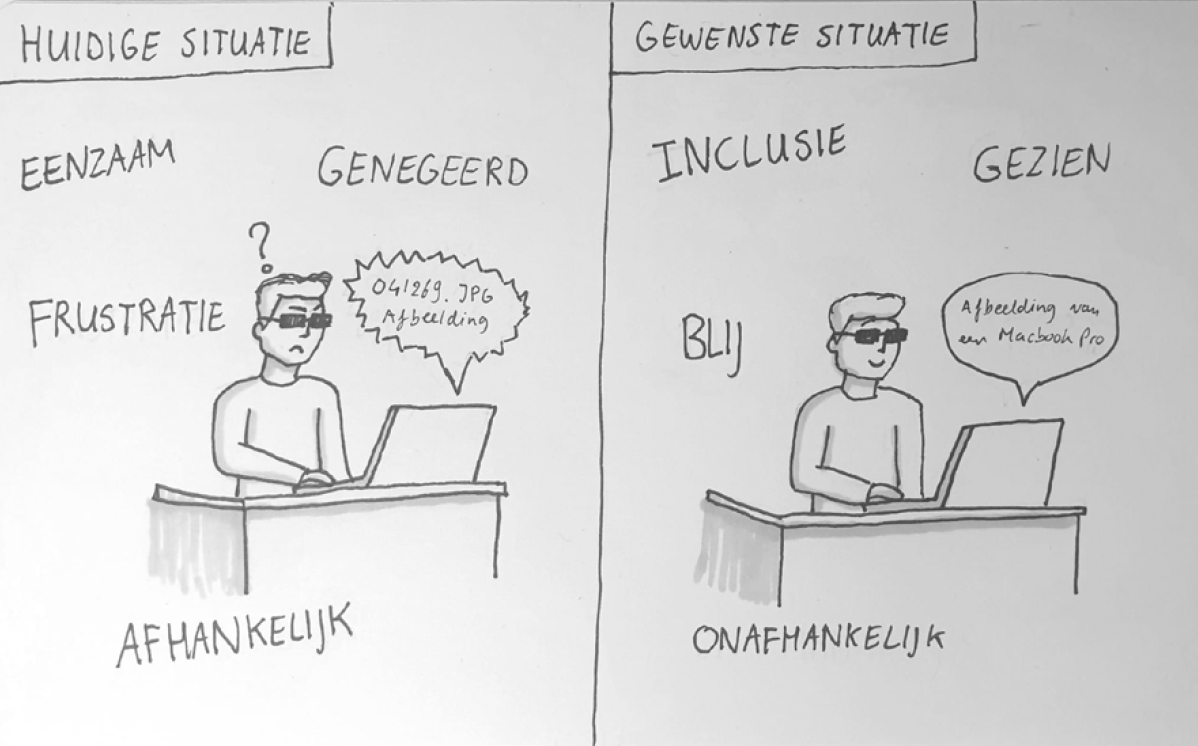 HUIDIGE SITUATIE
EENZAAM
GENEGEERD
?
041269.JPG
Afbeelding
FRUSTRATIE
AFHANKELIJK
GEWENSTE SITUATIE
INCLUSIE
GEZIEN
Afbeelding van
een Macbook Pro
BLIJ
ONAFHANKELIJK